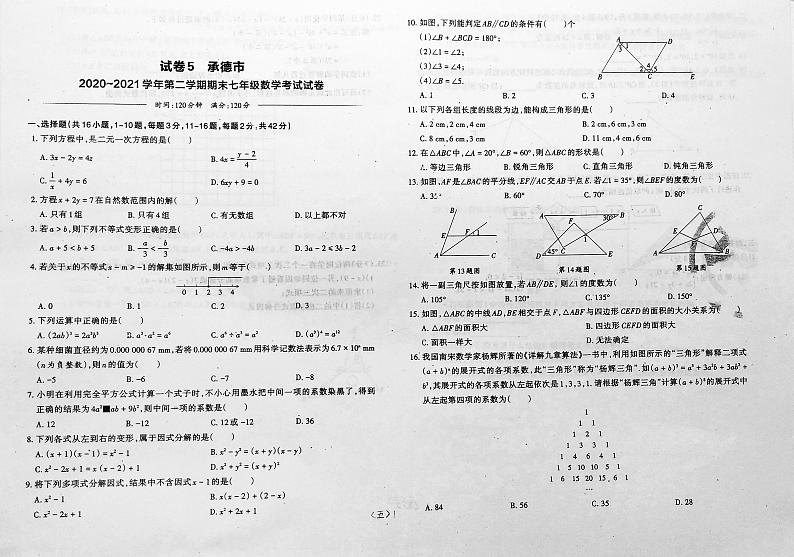 试卷5 承德市
2020~2021学年第二学期期末七年级数学考试试卷
时间:120分钟 满分:120分
一、选择题(共16小题,1-10题,每题3分,11-16题,每题2分,共42分)
1. 下列方程中,是二元一次方程的是( )
A. 3x-2y=4z B. 4x=(y-2)/4
C. 1/x+4y=6 D. 6xy+9=0
2. 方程x+2y=7在自然数范围内的解( )
A. 只有1组 B. 只有4组 C. 有无数组 D. 以上都不对
3. 若a>b,则下列不等式变形正确的是( )
A. a+5<b+5 B. -a/3<-b/3 C. -4a>-4b D. 3a-2≤3b-2
4. 若关于x的不等式x-m≥-1的解集如图所示,则m等于( )
0 1 2 3 4
A. 0 B. 1 C. 2 D. 3
5. 下列运算中正确的是( )
A. (2ab)³=2a³b³ B. a³·a²=a⁶ C. a⁶÷a³=a² D. (a³)⁴=a¹²
6. 某种细菌直径约为0.000 000 67 mm,若将0.000 000 67 mm用科学记数法表示为6.7×10ⁿ mm
(n为负整数),则n的值为( )
A. -5 B. -6 C. -7 D. -8
7. 小明在利用完全平方公式计算一个式子时,不小心用墨水把中间一项的系数染黑了,得到
正确的结果为4a²■ab+9b²,则中间一项的系数是( )
A. 12 B. -12 C. 12或-12 D. 36
8. 下列各式从左到右的变形,属于因式分解的是( )
A. (x+1)(x-1)=x²-1 B. x²-y²=(x+y)(x-y)
C. x²-2x+1=x(x-2)+1 D. x²+y²=(x+y)²
9. 将下列多项式分解因式,结果中不含因式x-1的是( )
A. x²-1 B. x(x-2)+(2-x)
C. x²-2x+1 D. x²+2x+1
10. 如图,下列能判定AB∥CD的条件有( )个
(1)∠B+∠BCD=180°;
(2)∠1=∠2;
(3)∠3=∠4;
(4)∠B=∠5.
A D
3 1
4
2 5
B C E
A. 1 B. 2 C. 3 D. 4
11. 以下列各组长度的线段为边,能构成三角形的是( )
A. 2 cm,2 cm,4 cm B. 2 cm,6 cm,3 cm
C. 8 cm,6 cm,3 cm D. 11 cm,4 cm,6 cm
12. 在△ABC中,∠A=20°,∠B=60°,则△ABC的形状是( )
A. 等边三角形 B. 锐角三角形 C. 直角三角形 D. 钝角三角形
13. 如图,AF是∠BAC的平分线,EF∥AC交AB于点E.若∠1=35°,则∠BEF的度数为( )
A. 35° B. 60° C. 70° D. 80°
B
E F 1
A C
第13题图
A F 30° B
C
1
D 45° E
第14题图
A
E D
F
B C
第15题图
14. 将一副三角尺按如图放置,若AB∥DE,则∠1的度数为( )
A. 105° B. 120° C. 135° D. 150°
15. 如图,△ABC的中线AD,BE相交于点F,△ABF与四边形CEFD的面积的大小关系为( )
A. △ABF的面积大 B. 四边形CEFD的面积大
C. 面积一样大 D. 无法确定
16. 我国南宋数学家杨辉所著的《详解九章算法》一书中,利用如图所示的“三角形”解释二项式
(a+b)ⁿ的展开式的各项系数,此“三角形”称为“杨辉三角”.如(a+b)³=a³+3a²b+3ab²+
b³,其展开式的各项系数从左起依次是1,3,3,1.请根据“杨辉三角”计算(a+b)⁸的展开式中
从左起第四项的系数为( )
1
1 1
1 2 1
1 3 3 1
1 4 6 4 1
1 5 10 10 5 1
1 6 15 20 15 6 1
…
A. 84 B. 56 C. 35 D. 28
(五)1